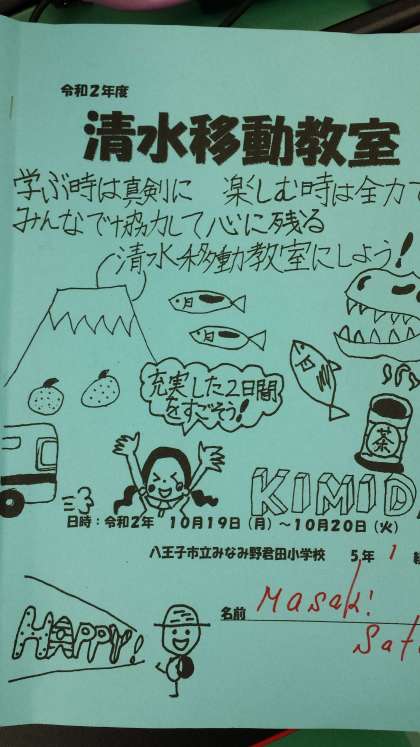 令和2年度
清水移動教室
学ぶ時は真剣に 楽しむ時は全力で
みんなで協力して心に残る
清水移動教室にしよう!
充実した2日間
をすごそう!
茶
KIMIDA
日時:令和2年 10月19日(月)~10月20日(火)
八王子市立みなみ野君田小学校 5年 1 組
名前 Masaki
Sat
HAPPY!